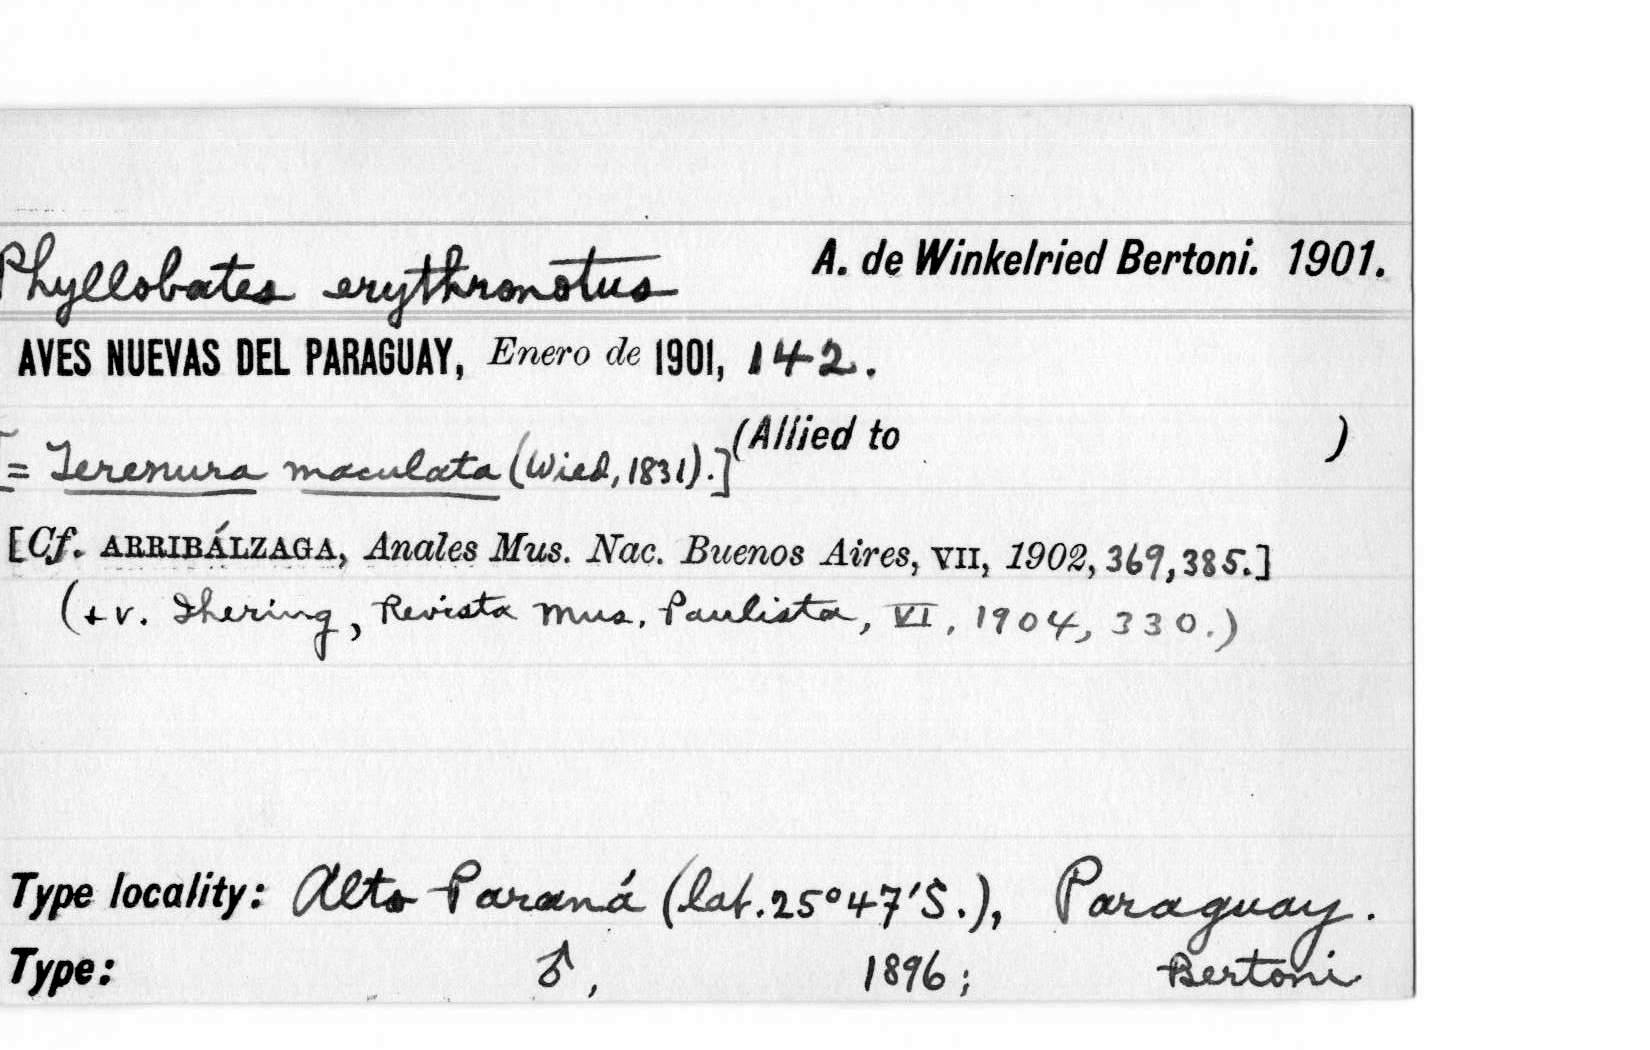 Phyllobates erythronotus A. de Winkelried Bertoni. 1901.
AVES NUEVAS DEL PARAGUAY, Enero de 1901, 142.
[= Terenura maculata (Wied, 1831).] (Allied to )
[Cf. ARRIBÁLZAGA, Anales Mus. Nac. Buenos Aires, VII, 1902, 369, 385.]
(+ v. Ihering, Revista Mus. Paulista, VI, 1904, 330.)
Type locality: Alto Paraná (lat. 25°47'S.), Paraguay.
Type: ♂, 1896; Bertoni